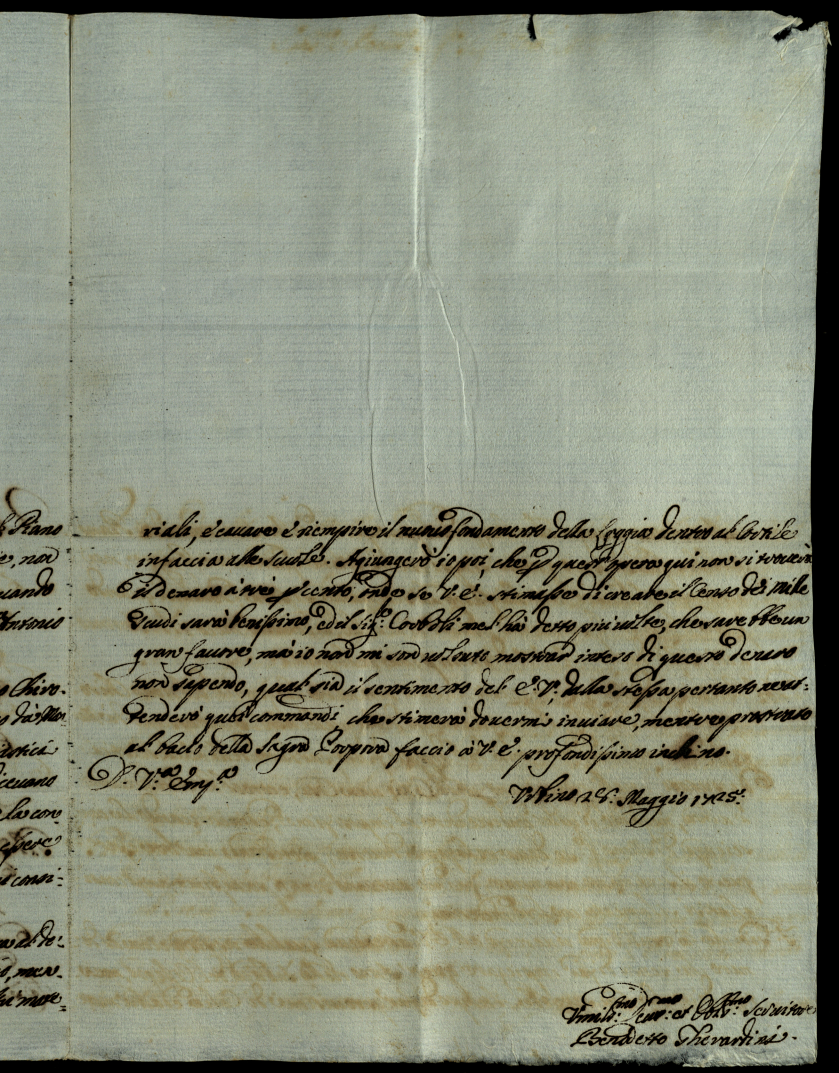 l Piano
e, non
uando
Antonio
o Chiro-
stica
icevano
e la con
e spese
i consi-
o, men-
riali, e cavare e riempire il nuovo fondamento della Loggia dentro al Cortile
in faccia alle scuole. Agiugnerò io poi, che p quest'opera qui non si trouerà
il denaro à trè p cento, onde se V. E. stimasse di creare il Censo dei mille
scudi sarà benissimo, ed el Sig.r Corboli me l'hà detto più uolte, che sarebbe un
gran fauore, mà io non mi son uoluto mostrar inteso di questo denaro
non sapendo, qual sia il sentimento del E. V., dalla stessa pertanto ne at-
tenderò quei commandi che stimerà douermi inuiare, mentre prostrato
al bacio della Sagra Porpora faccio à V. E. profondissimo inchino.
D. V.ra Em.za
Urbino 28: Maggio 1725.
Vmil.mo Deu.mo et Obb.mo Seruitore
Benedetto Gherardini.